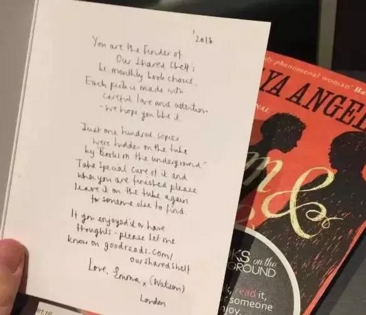 '2016
You are the finder of
Our Shared Shelf's
bi monthly book choice.
Each pick is made with
careful love and attention
- we hope you like it.
Just one hundred copies
were hidden on the tube
by "Books on the underground"
Take special care of it and
when you are finished please
leave it on the tube again
for someone else to find.
It you enjoyed it or have
thoughts - please let me
know on goodreads.com/
oursharedshelf
Love, Emma x (Watson)
London
phenomenal woman'
YA ANGEL
m &
KS on the
GROUND
read it,
someone